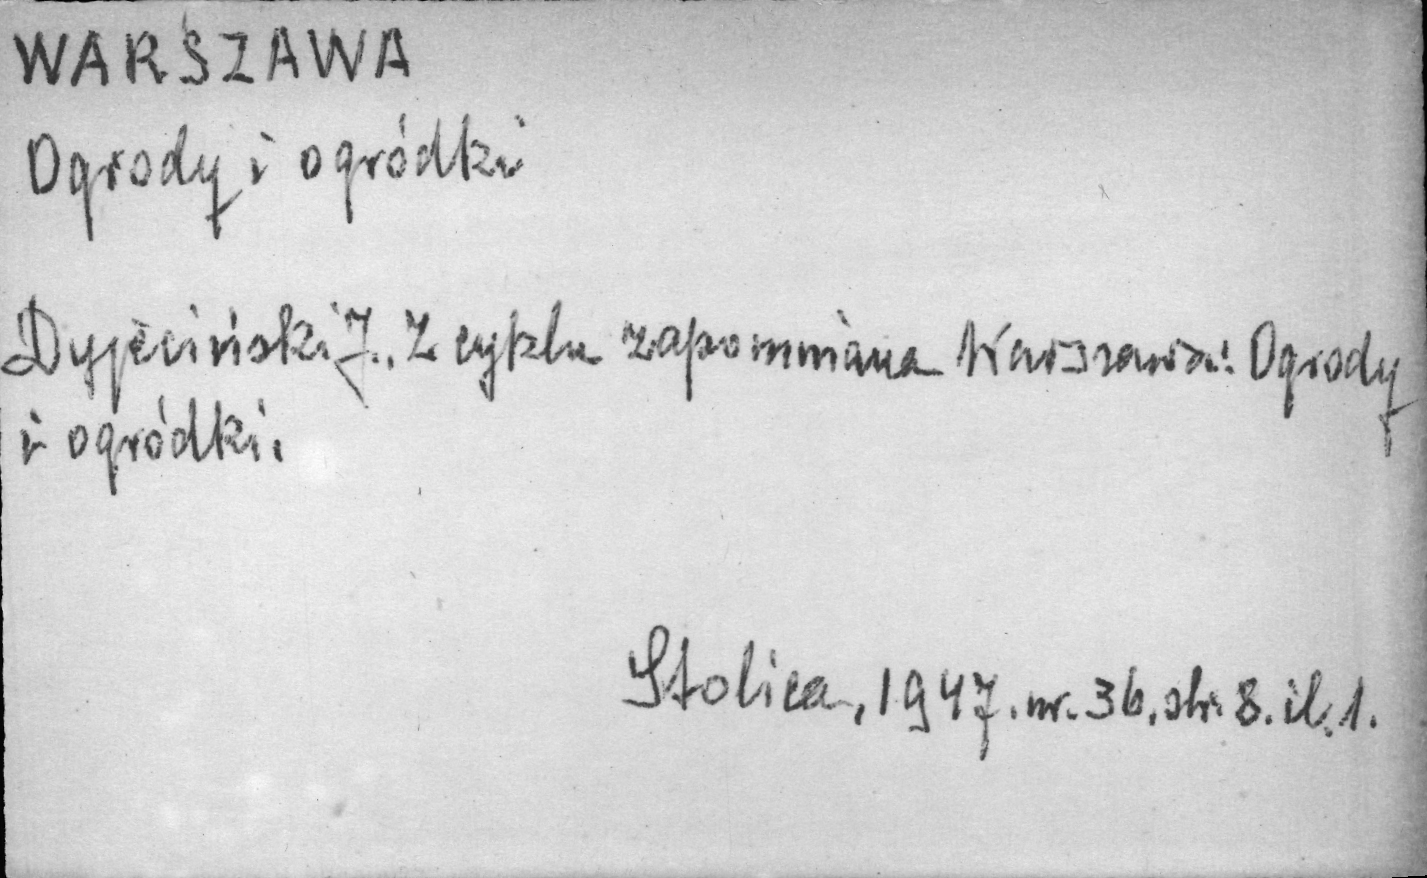 WARSZAWA
Ogrody i ogródki
Dypciński J., Z cyklu zapomniana Warszawa: Ogrody
i ogródki.
Stolica, 1947. nr. 36. str. 8. il. 1.